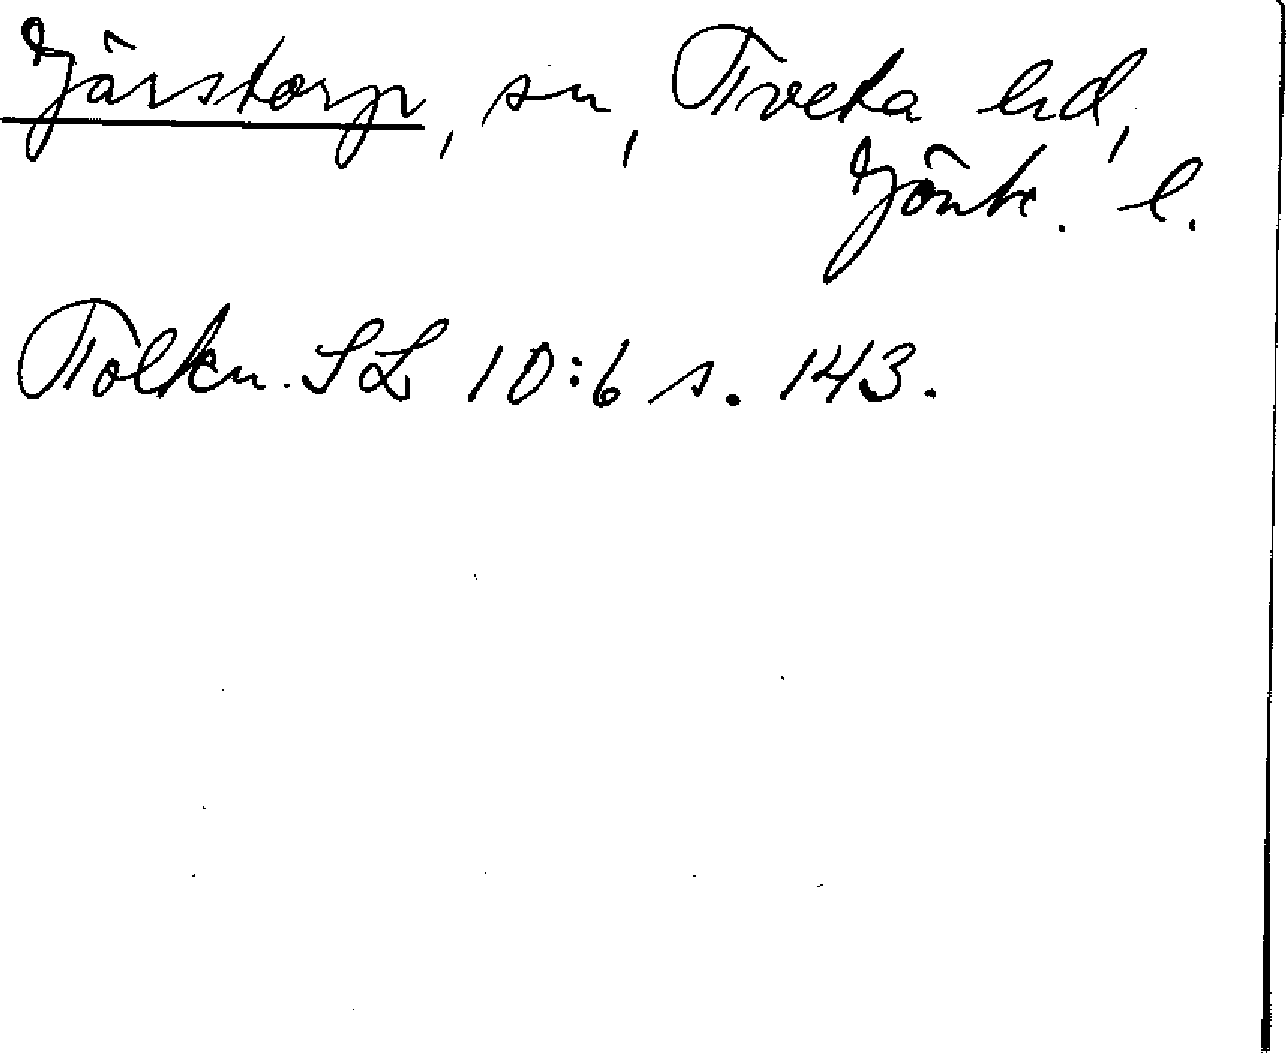 Järstorp, sn, Tveta hd,
Jönk. l.
Tolkn. SL 10:6 s. 143.